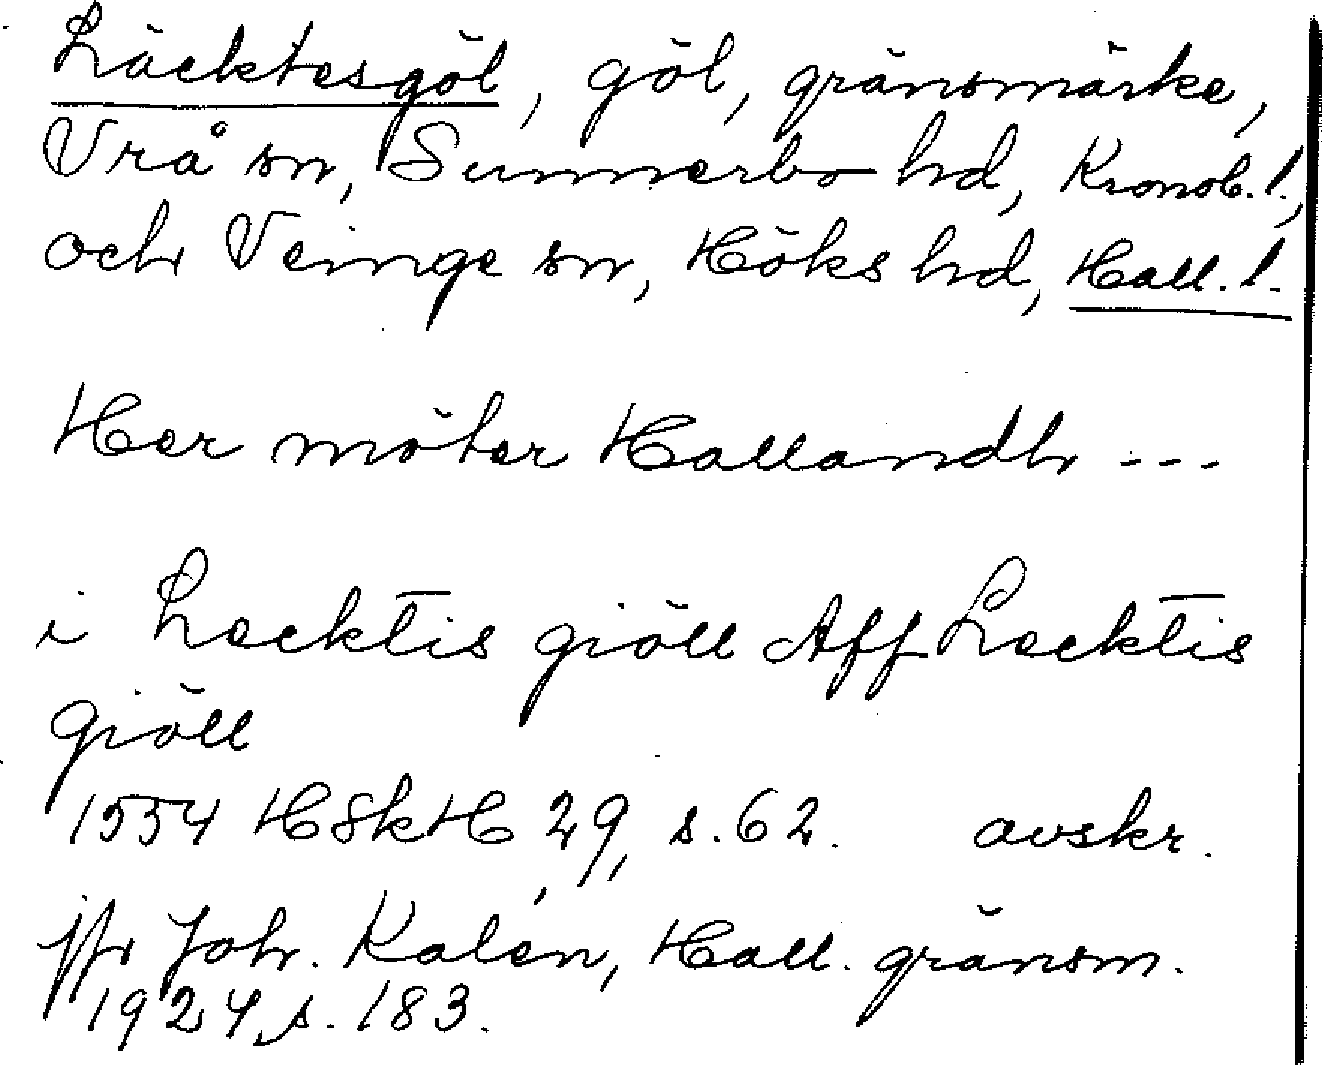 Läcktesgöl, göl, gränsmärke,
Vrå sn, Sunnerbo hd, Kronob. l.,
och Veinge sn, Höks hd, Hall. l.
Her möter Hallandh ---
i Lecktis giöll Aff Lecktis
giöll
1554 HSkH 29, s. 62. avskr.
jfr Joh. Kalén, Hall. gränsm.
1924, s. 183.